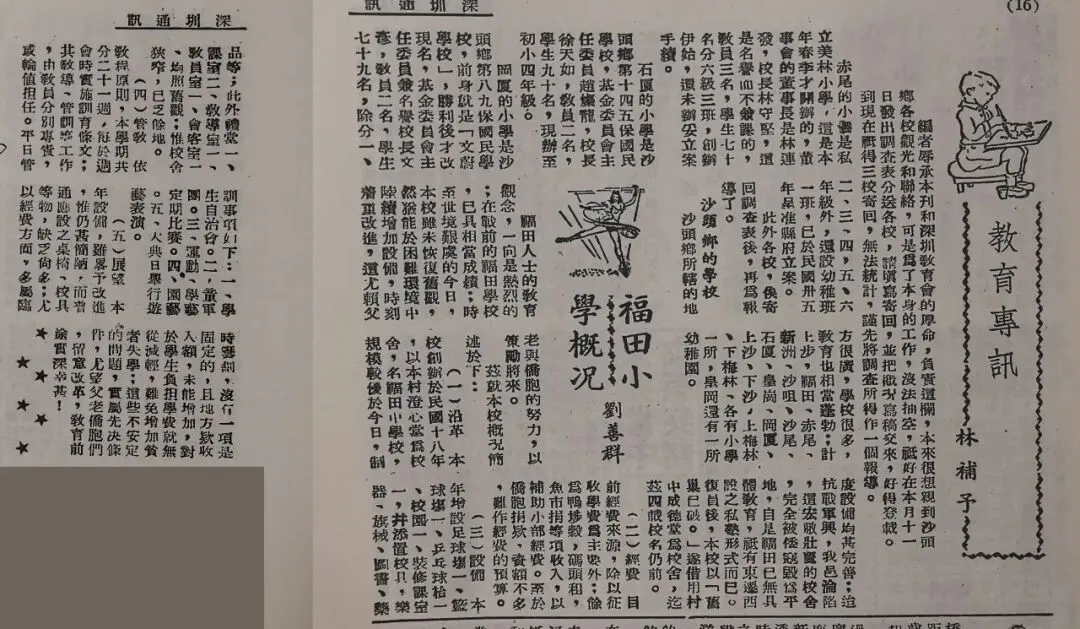 深圳通訊
(16)
教育專訊
林補予
編者辱承本刊和深圳教育會的厚命,負責這欄,本來很想親到沙頭
鄉各校觀光和聯絡,可是爲了本身的工作,沒法抽空,祗好在本月十一
日發出調查表分送各校,請填寫寄回,並把概況寫稿交來,好得登載。
到現在祗得三校寄回,無法統計,謹先將調查所得作一個報導。
赤尾的小學是私
立美林小學,這是本
年春季才開辦的,董
事會的董事長是林連
發,校長林守堅,這
是名譽而不兼課的,
教員三名,學生七十
名分六級三班,創辦
伊始,還未辦妥立案
手續。
石厦的小學是沙
頭鄉第十四五保國民
學校,基金委員會主
任委員趙燦龍,校長
徐天如,教員二名,
學生九十名,現辦至
初小四年級。
岡厦的小學是沙
頭鄉第八九保國民學
校,前身就是「文蔚
學校」,勝利後才改
現名,基金委員會主
任委員兼名譽校長文
彥,教員二名,學生
七十九名,除分一、
二、三、四、五、六
年級外,還設幼稚班
一班,已於民國卅五
年呈准縣府立案。
此外各校,俟寄
回調查表後,再爲報
導了。
沙頭鄉的學校
沙頭鄉所轄的地
方很廣,學校很多,
教育也相當蓬勃;計
上步,福田、赤尾、
新洲、沙咀、沙尾、
石厦、皇崗、岡厦、
上沙、下沙、上梅林
、下梅林、各有小學
一所,皇岡還有一所
幼稚園。
福田小
學概况
劉善群
福田人士的教育
觀念,一向是熱烈的
;在戰前的福田學校
,已具相當成績;時
至世境艱虞的今日,
本校雖未恢復舊觀,
然猶能於困難環境中
陸續增加設備,時刻
着重改進,這尤賴父
老與僑胞的努力,以
策勵將來。
茲就本校概况簡
述於下:
(一)沿革 本
校創辦於民國十八年
,以本村澄心堂爲校
舍,名福田中學校,
規模較優於今日,制
度設備均甚完善;迨
抗戰軍興,我邑淪陷
,這宏敞壯麗的校舍
,完全被倭寇毀爲平
地,自是福田已無具
體教育,祗有東遷西
設之私塾形式而已。
復員後,本校以「舊
巢已破。」遂借用村
中成德堂爲校舍,迄
茲四載校名仍前。
(二)經費 目
前經費來源,除以征
收學費爲主要外;餘
爲鴨埗穀,碼頭租,
魚市捐等項收入,以
補助小部經費。至於
僑胞捐欵,資額不多
,難作經費的預算。
(三)設備 本
年增設足球塲一、籃
球塲一、乒乓球枱一
、校園一、裝修課室
一,井添置校具,樂
器、旗械、圖書、藥
深圳通訊
品等;此外禮堂一、
課室二、教導室一、
教員室一、會客室一
、均照舊觀;惟校舍
狹窄,已乏餘地。
(四)管教 依
教程原則,本學期共
分二十一週,每於週
會時實施訓育條文;
其教導、管訓等工作
,由教員分別專責,
或輪值担任。平日管
訓事項如下:一、學
生自治會。二、童軍
團。三、運動、學藝
定期比賽。四、園藝
。五、大典日舉行遊
藝表演。
(五)展望 本
年設備,雖畧予改進
,惟仍甚簡陋,而普
通應設之桌椅、校具
等物,缺乏尚多;尤
以經費方面,多屬臨
時籌劃,沒有一項是
固定的,且地方欵收
入額,未能增加,對
於學生負担學費就無
從減輕,難免增加貧
者失學;這些不安定
的問題,實屬先决條
件,尤望父老僑胞們
,留意改革,教育前
途實深幸甚!